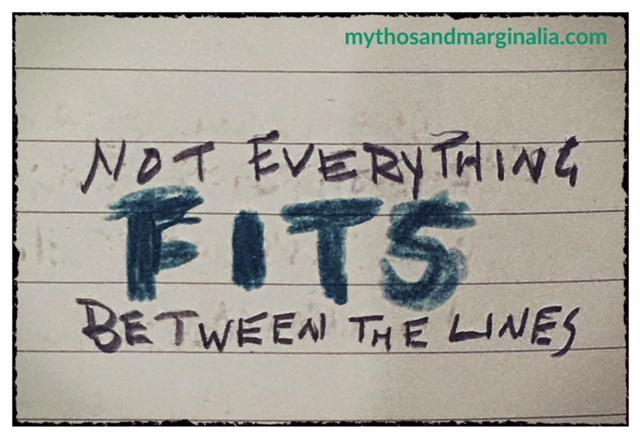 mythosandmarginalia.com
NOT EVERYTHING
FITS
BETWEEN THE LINES